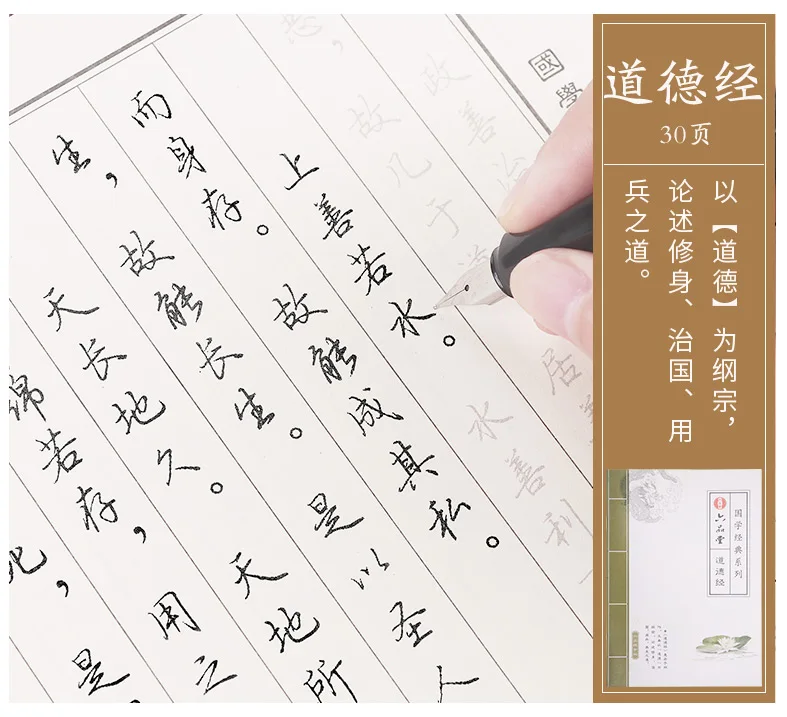 國學
政善治
恶，故几于道。居善
上善若水。水善利
而身存。故能成其私。
生，故能长生。是以圣人
天长地久。天地所
绵若存，用之
牝，是
道德经
30页
以【道德】为纲宗，
论述修身、治国、用
兵之道。
国学经典系列
六品堂
道德经